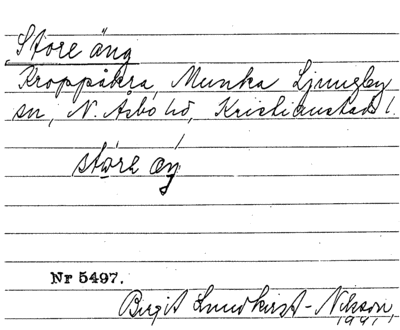 Store äng
Kroppåkra, Munka Ljungby
sn, N. Åsbo hd, Kristianstads l.
store
Nr 5497.
Birgit Lundkvist-Nilsson